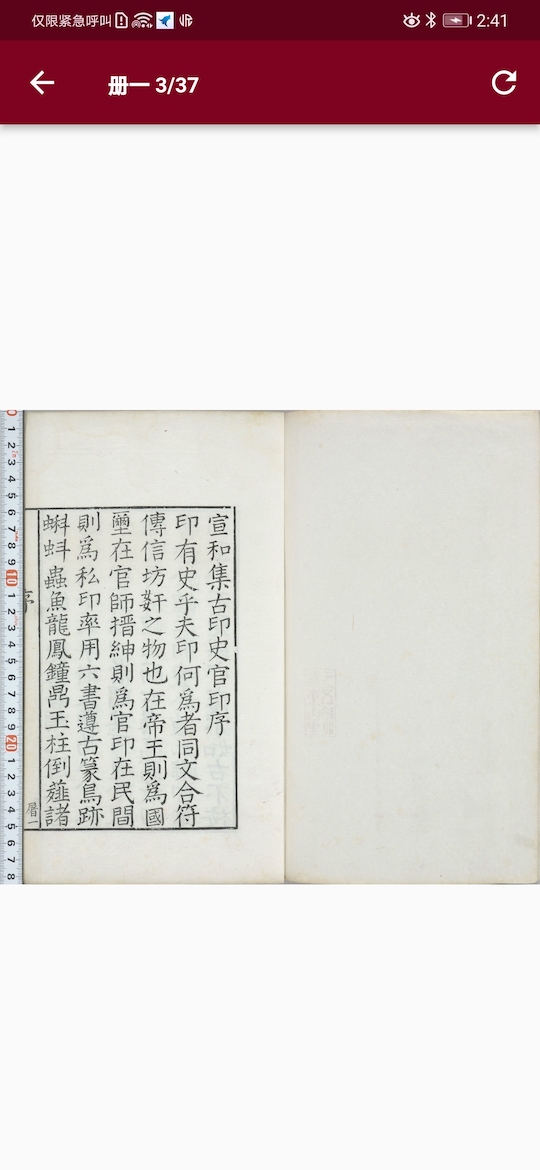 仅限紧急呼叫
2:41
册一 3/37
宣和集古印史官印序
印有史乎夫印何爲者同文合符
傳信坊奸之物也在帝王則爲國
璽在官師搢紳則爲官印在民間
則爲私印率用六書遵古篆鳥跡
蝌蚪蟲魚龍鳳鐘鼎玉柱倒薤諸
序
一
0 1 2 3 4 5 6 7 8 9 10 1 2 3 4 5 6 7 8 9 20 1 2 3 4 5 6 7 8